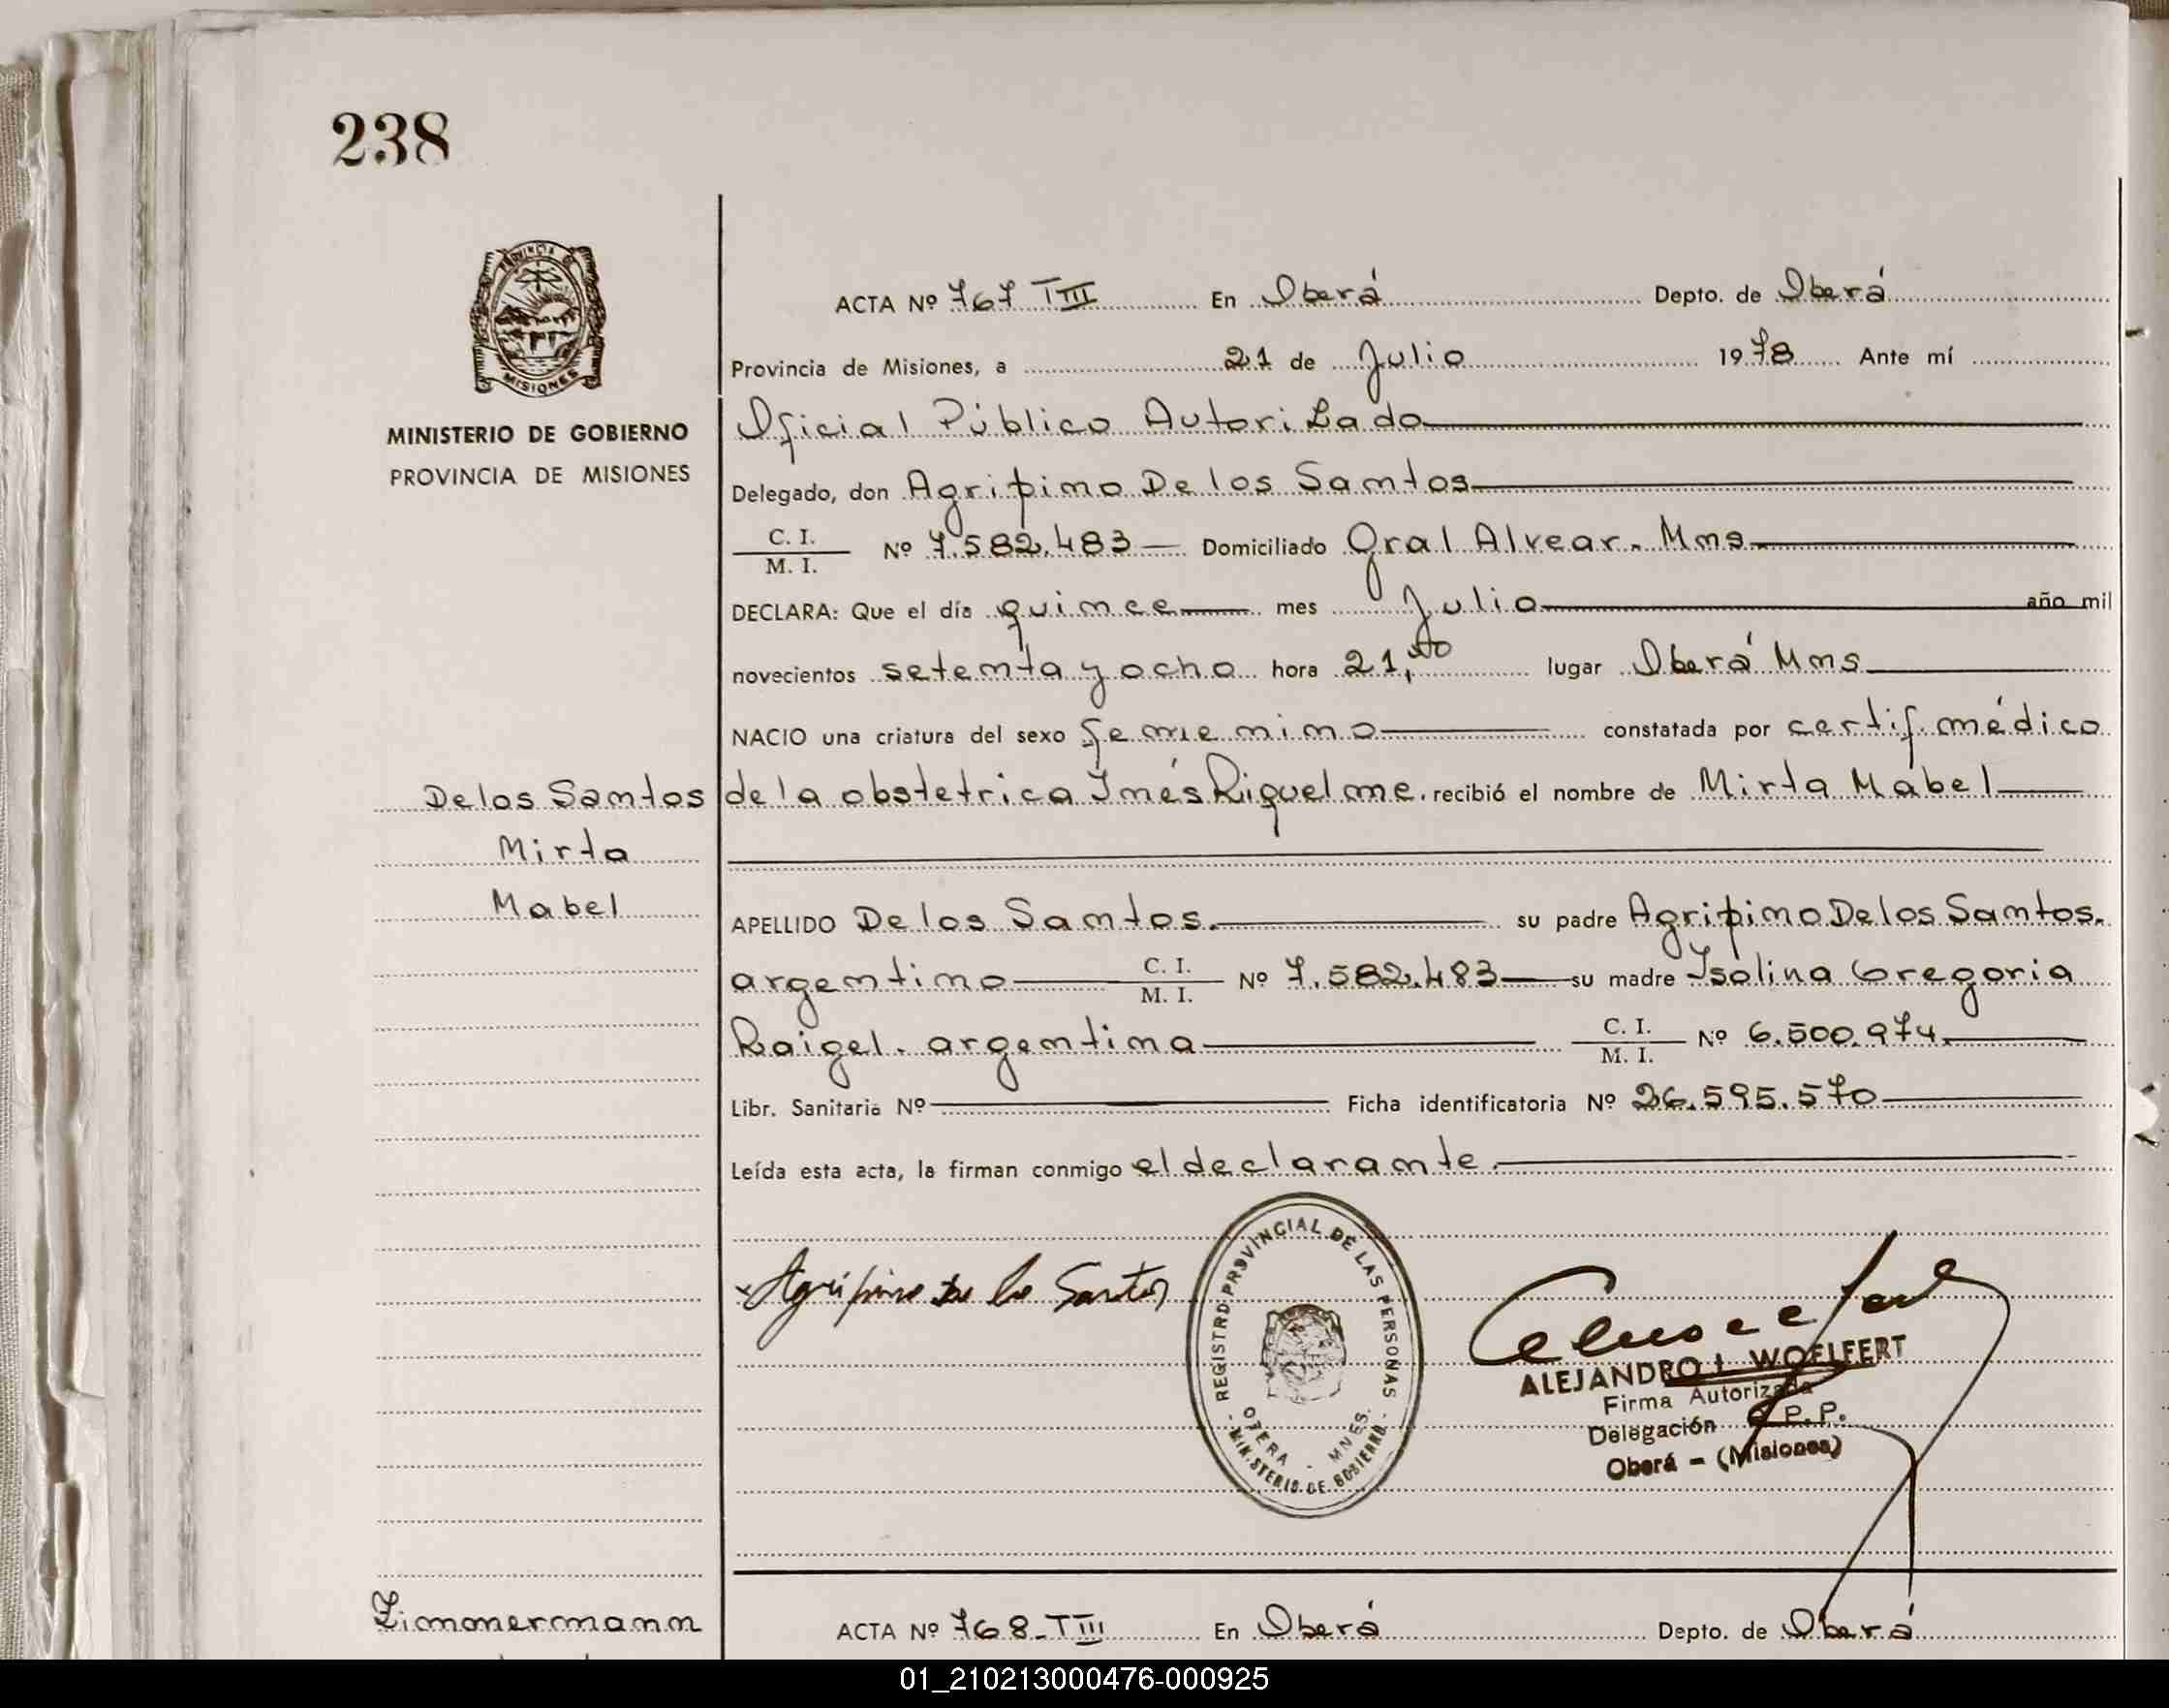 238
PROVINCIA DE
MISIONES
MINISTERIO DE GOBIERNO
PROVINCIA DE MISIONES
ACTA Nº 767 TIII En Oberá Depto. de Oberá
Provincia de Misiones, a 21 de Julio 1978 Ante mí
Oficial Público Autorizado
Delegado, don Agripino De los Santos
C. I.
M. I. Nº 7.582.483 Domiciliado Gral Alvear. Mns
DECLARA: Que el día quince mes Julio año mil
novecientos setenta y ocho hora 21,00 lugar Oberá Mns
NACIO una criatura del sexo femenino constatada por certif. médico
De los Santos
Mirta
Mabel
de la obstetrica Inés Riquelme. recibió el nombre de Mirta Mabel
APELLIDO De los Santos. su padre Agripino De los Santos.
argentino C. I.
M. I. Nº 7.582.483 su madre Ysolina Gregoria
Raigel. argentina C. I.
M. I. Nº 6.500.974.
Libr. Sanitaria Nº Ficha identificatoria Nº 26.595.570
Leída esta acta, la firman conmigo el declarante.
Agripino De lo Santos
REGISTRO PROVINCIAL DE LAS PERSONAS
OBERA - MNES.
- MINISTERIO DE GOBIERNO -
ALEJANDRO L. WOELFERT
Firma Autorizada
Delegación R. P. P.
Oberá - (Misiones)
Zimmermann
ACTA Nº 768-TIII En Oberá Depto. de Oberá
01_210213000476-000925